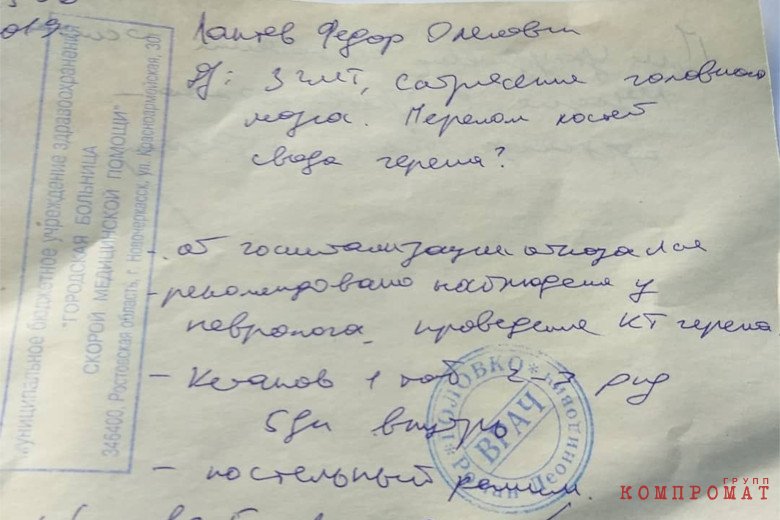 019
Лаптев Федор Олегович
Ds: ЗЧМТ, сотрясение головного
мозга. Перелом костей
свода черепа?
- от госпитализации отказался
- рекомендовано наблюдение у
невролога, проведение КТ черепа
- Кетанов 1 таб 2-3 р/д
5 дн внутрь
- постельный режим.
Муниципальное бюджетное учреждение здравоохранения
"ГОРОДСКАЯ БОЛЬНИЦА
СКОРОЙ МЕДИЦИНСКОЙ ПОМОЩИ"
346400, Ростовская область, г. Новочеркасск, ул. Красноармейская, 30
ГОЛОВКО
Роман Леонидович
ВРАЧ
ГРУПП
КОМПРОМАТ